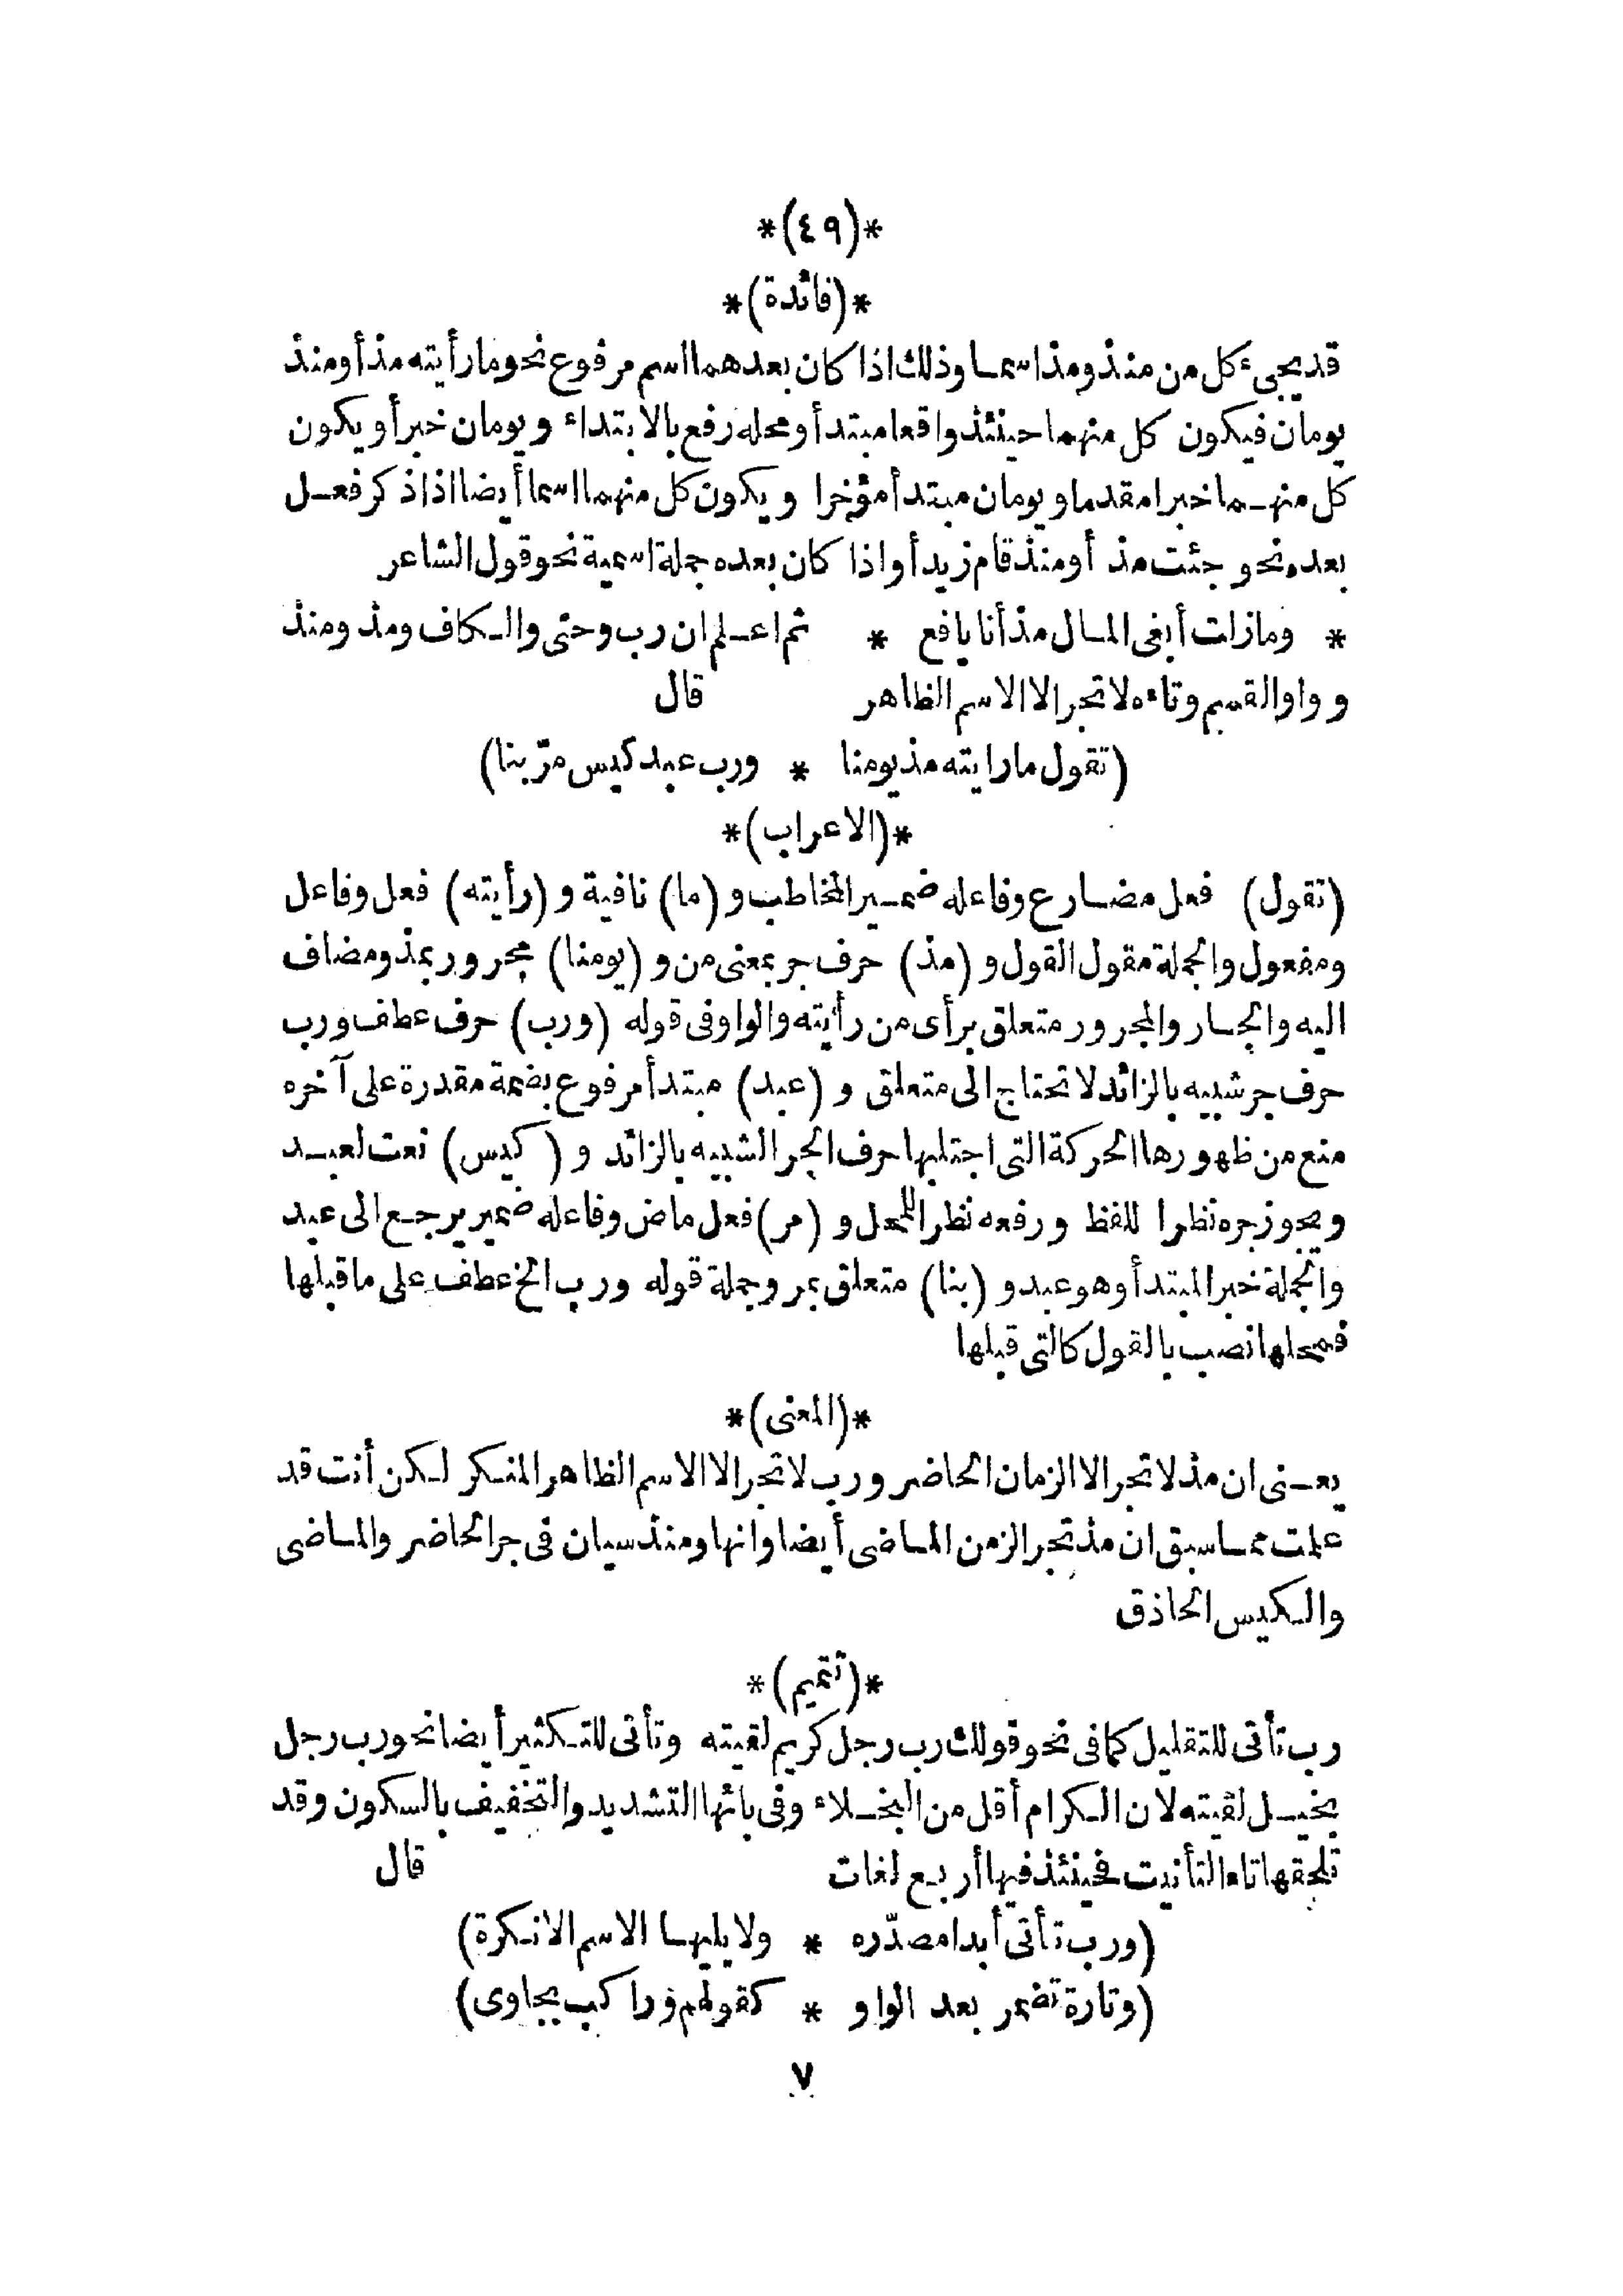 *(٤٩)*
*(فائدة)*
قد يجىء كل من منذ ومذ اسما وذلك اذا كان بعدهما اسم مرفوع نحو ما رأيته مذ أو منذ
يومان فيكون كل منهما حينئذ واقعا مبتدأ ومحله رفع بالابتداء ويومان خبر أو يكون
كل منهما خبرا مقدما ويومان مبتدأ مؤخرا ويكون كل منهما اسما أيضا اذا ذكر فعل
بعده نحو جئت مذ أو منذ قام زيد أو اذا كان بعده جملة اسمية نحو قول الشاعر
* وما زلت أبغى المال مذ أنا يافع * ثم اعلم ان رب وحتى والكاف ومذ ومنذ
و واو القسم وتاءه لا تجر الا الاسم الظاهر قال
(تقول ما رايته مذ يومنا * ورب عبد كيس مرّ بنا)
*(الاعراب)*
(تقول) فعل مضارع وفاعله ضمير المخاطب و (ما) نافية و (رأيته) فعل وفاعل
ومفعول والجملة مقول القول و (مذ) حرف جر بمعنى من و (يومنا) مجرور بمذ ومضاف
اليه والجار والمجرور متعلق برأى من رأيته والواو فى قوله (ورب) حرف عطف ورب
حرف جر شبيه بالزائد لا تحتاج الى متعلق و (عبد) مبتدأ مرفوع بضمة مقدرة على آخره
منع من ظهورها الحركة التى اجتلبها حرف الجر الشبيه بالزائد و (كيس) نعت لعبد
ويجوز جره نظرا للفظ ورفعه نظرا للمحل و (مر) فعل ماض وفاعله ضمير يرجع الى عبد
والجملة خبر المبتدأ وهو عبد و (بنا) متعلق بمر وجملة قوله ورب الخ عطف على ما قبلها
فمحلها نصب بالقول كالتى قبلها
*(المعنى)*
يعنى ان مذ لا تجر الا الزمان الحاضر ورب لا تجر الا الاسم الظاهر المنكر لكن أنت قد
علمت مما سبق ان مذ تجر الزمن الماضى أيضا وانها ومنذ سيان فى جر الحاضر والماضى
والكيس الحاذق
*(تتميم)*
رب تأتى للتقليل كما فى نحو قولك رب رجل كريم لقيته وتأتى للتكثير أيضا نحو رب رجل
بخيل لقيته لان الكرام أقل من البخلاء وفى بائها التشديد والتخفيف بالسكون وقد
تلحقها تاء التأنيت فحينئذ فيها أربع لغات قال
(ورب تأتى أبدا مصدّره * ولا يليها الاسم الا نكرة)
(وتارة تضمر بعد الواو * كقولهم وراكب بجاوى)
٧